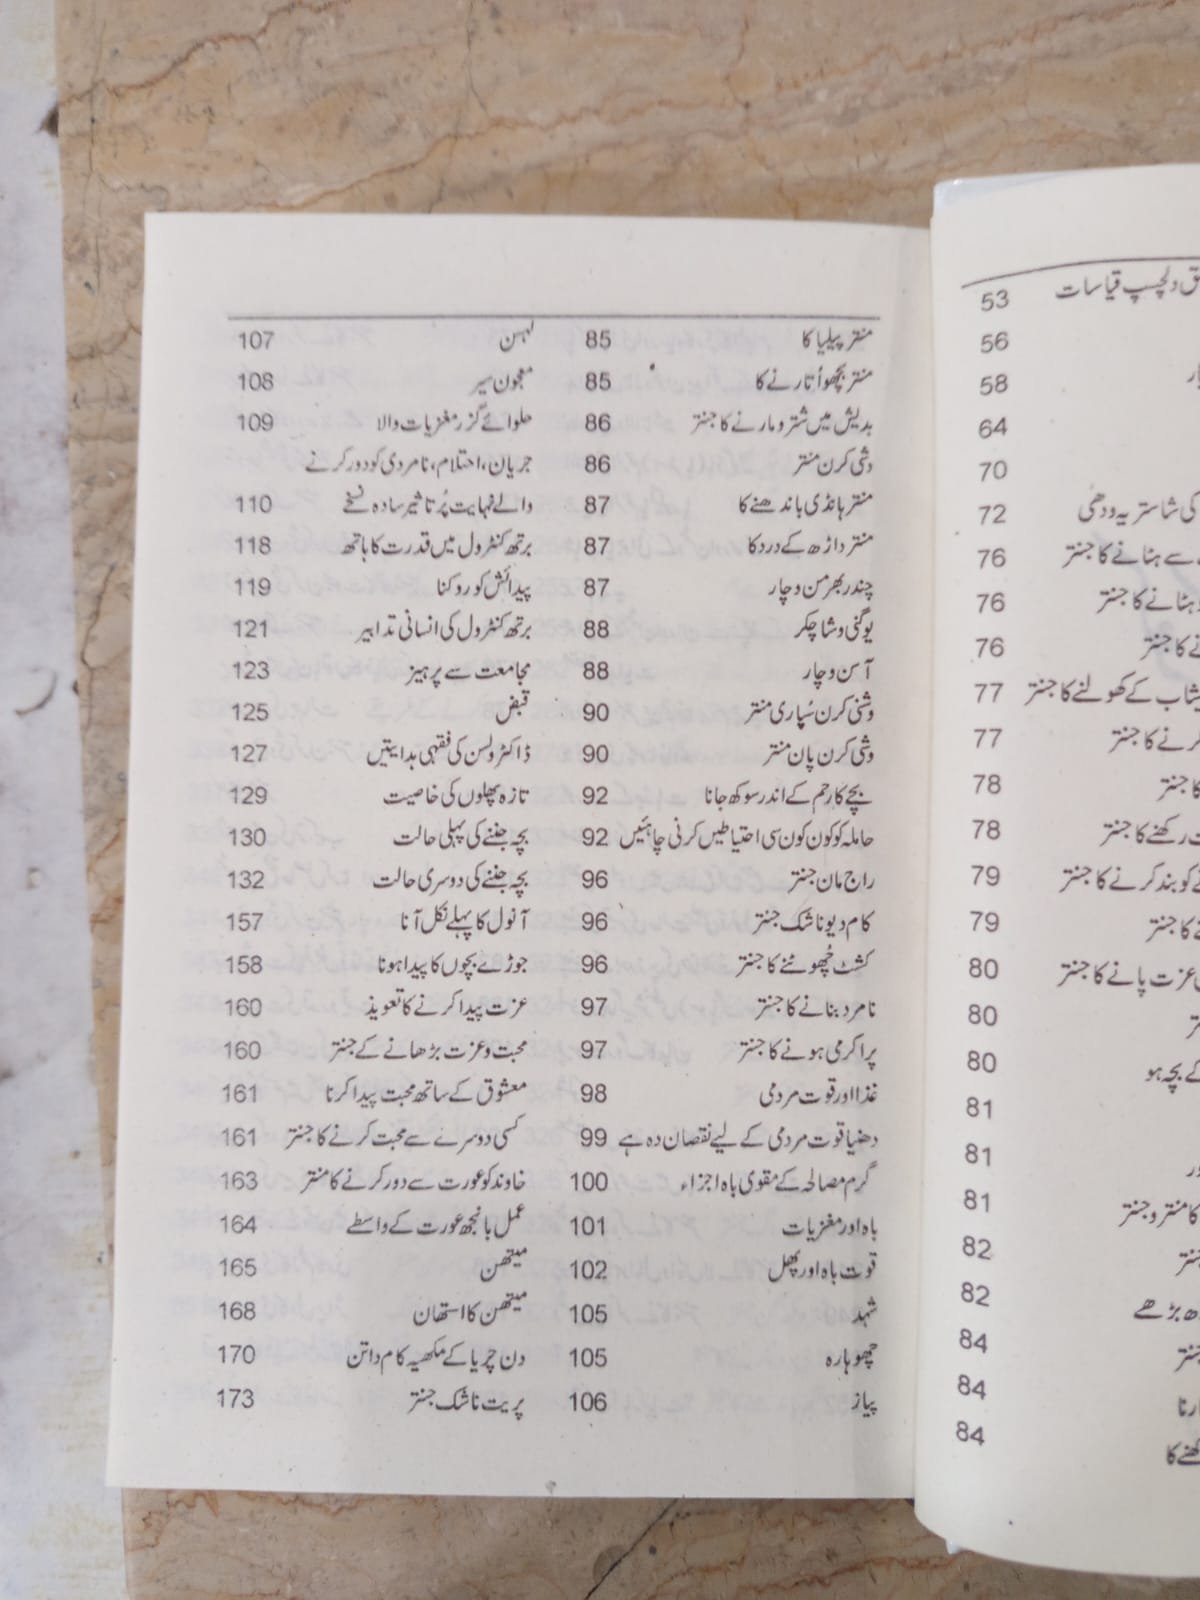 منتر پیلیا کا 85
منتر بچھو اُتارنے کا 85
بدیش میں شترو مارنے کا جنتر 86
وشی کرن منتر 86
منتر ہانڈی باندھنے کا 87
منتر داڑھ کے درد کا 87
چندر بھرمن وچار 87
یوگنی وشا چکر 88
آسن وچار 88
وشنی کرن سُپاری منتر 90
وشی کرن پان منتر 90
بچے کا رحم کے اندر سوکھ جانا 92
حاملہ کو کون کون سی احتیاطیں کرنی چاہئیں 92
راج مان جنتر 96
کام دیو ناشک جنتر 96
کشٹ چُھوٹنے کا جنتر 96
نامرد بنانے کا جنتر 97
پراکرمی ہونے کا جنتر 97
غذا اور قوت مردمی 98
دھنیا قوت مردمی کے لیے نقصان دہ ہے 99
گرم مصالحہ کے مقوی باہ اجزاء 100
باہ اور مغزیات 101
قوت باہ اور پھل 102
شہد 105
چھوہارہ 105
پیاز 106
لہسن 107
معجون سیر 108
حلوائے گزر مغزیات والا 109
جریان، احتلام، نامردی کو دور کرنے
والے نہایت پُر تاثیر سادہ نسخے 110
برتھ کنٹرول میں قدرت کا ہاتھ 118
پیدائش کو روکنا 119
برتھ کنٹرول کی انسانی تدابیر 121
مجامعت سے پرہیز 123
قبض 125
ڈاکٹر ولسن کی فقہی ہدایتیں 127
تازہ پھلوں کی خاصیت 129
بچہ جننے کی پہلی حالت 130
بچہ جننے کی دوسری حالت 132
آنول کا پہلے نکل آنا 157
جوڑے بچوں کا پیدا ہونا 158
عزت پیدا کرنے کا تعویذ 160
محبت و عزت بڑھانے کے جنتر 160
معشوق کے ساتھ محبت پیدا کرنا 161
کسی دوسرے سے محبت کرنے کا جنتر 161
خاوند کو عورت سے دور کرنے کا منتر 163
عمل بانجھ عورت کے واسطے 164
میتھن 165
میتھن کا استھان 168
دن چریا کے مکھیہ کام داتن 170
پریت ناشک جنتر 173
دلچسپ قیاسات 53
56
58
64
70
کی شاستریہ ودھی 72
سے ہٹانے کا جنتر 76
ہٹانے کا جنتر 76
کا جنتر 76
کے کھولنے کا جنتر 77
کرنے کا جنتر 77
جنتر 78
رکھنے کا جنتر 78
کو بند کرنے کا جنتر 79
کا جنتر 79
عزت پانے کا جنتر 80
80
کے بچہ ہو 80
81
81
کا منتر و جنتر 81
82
بڑھے 82
84
84
84